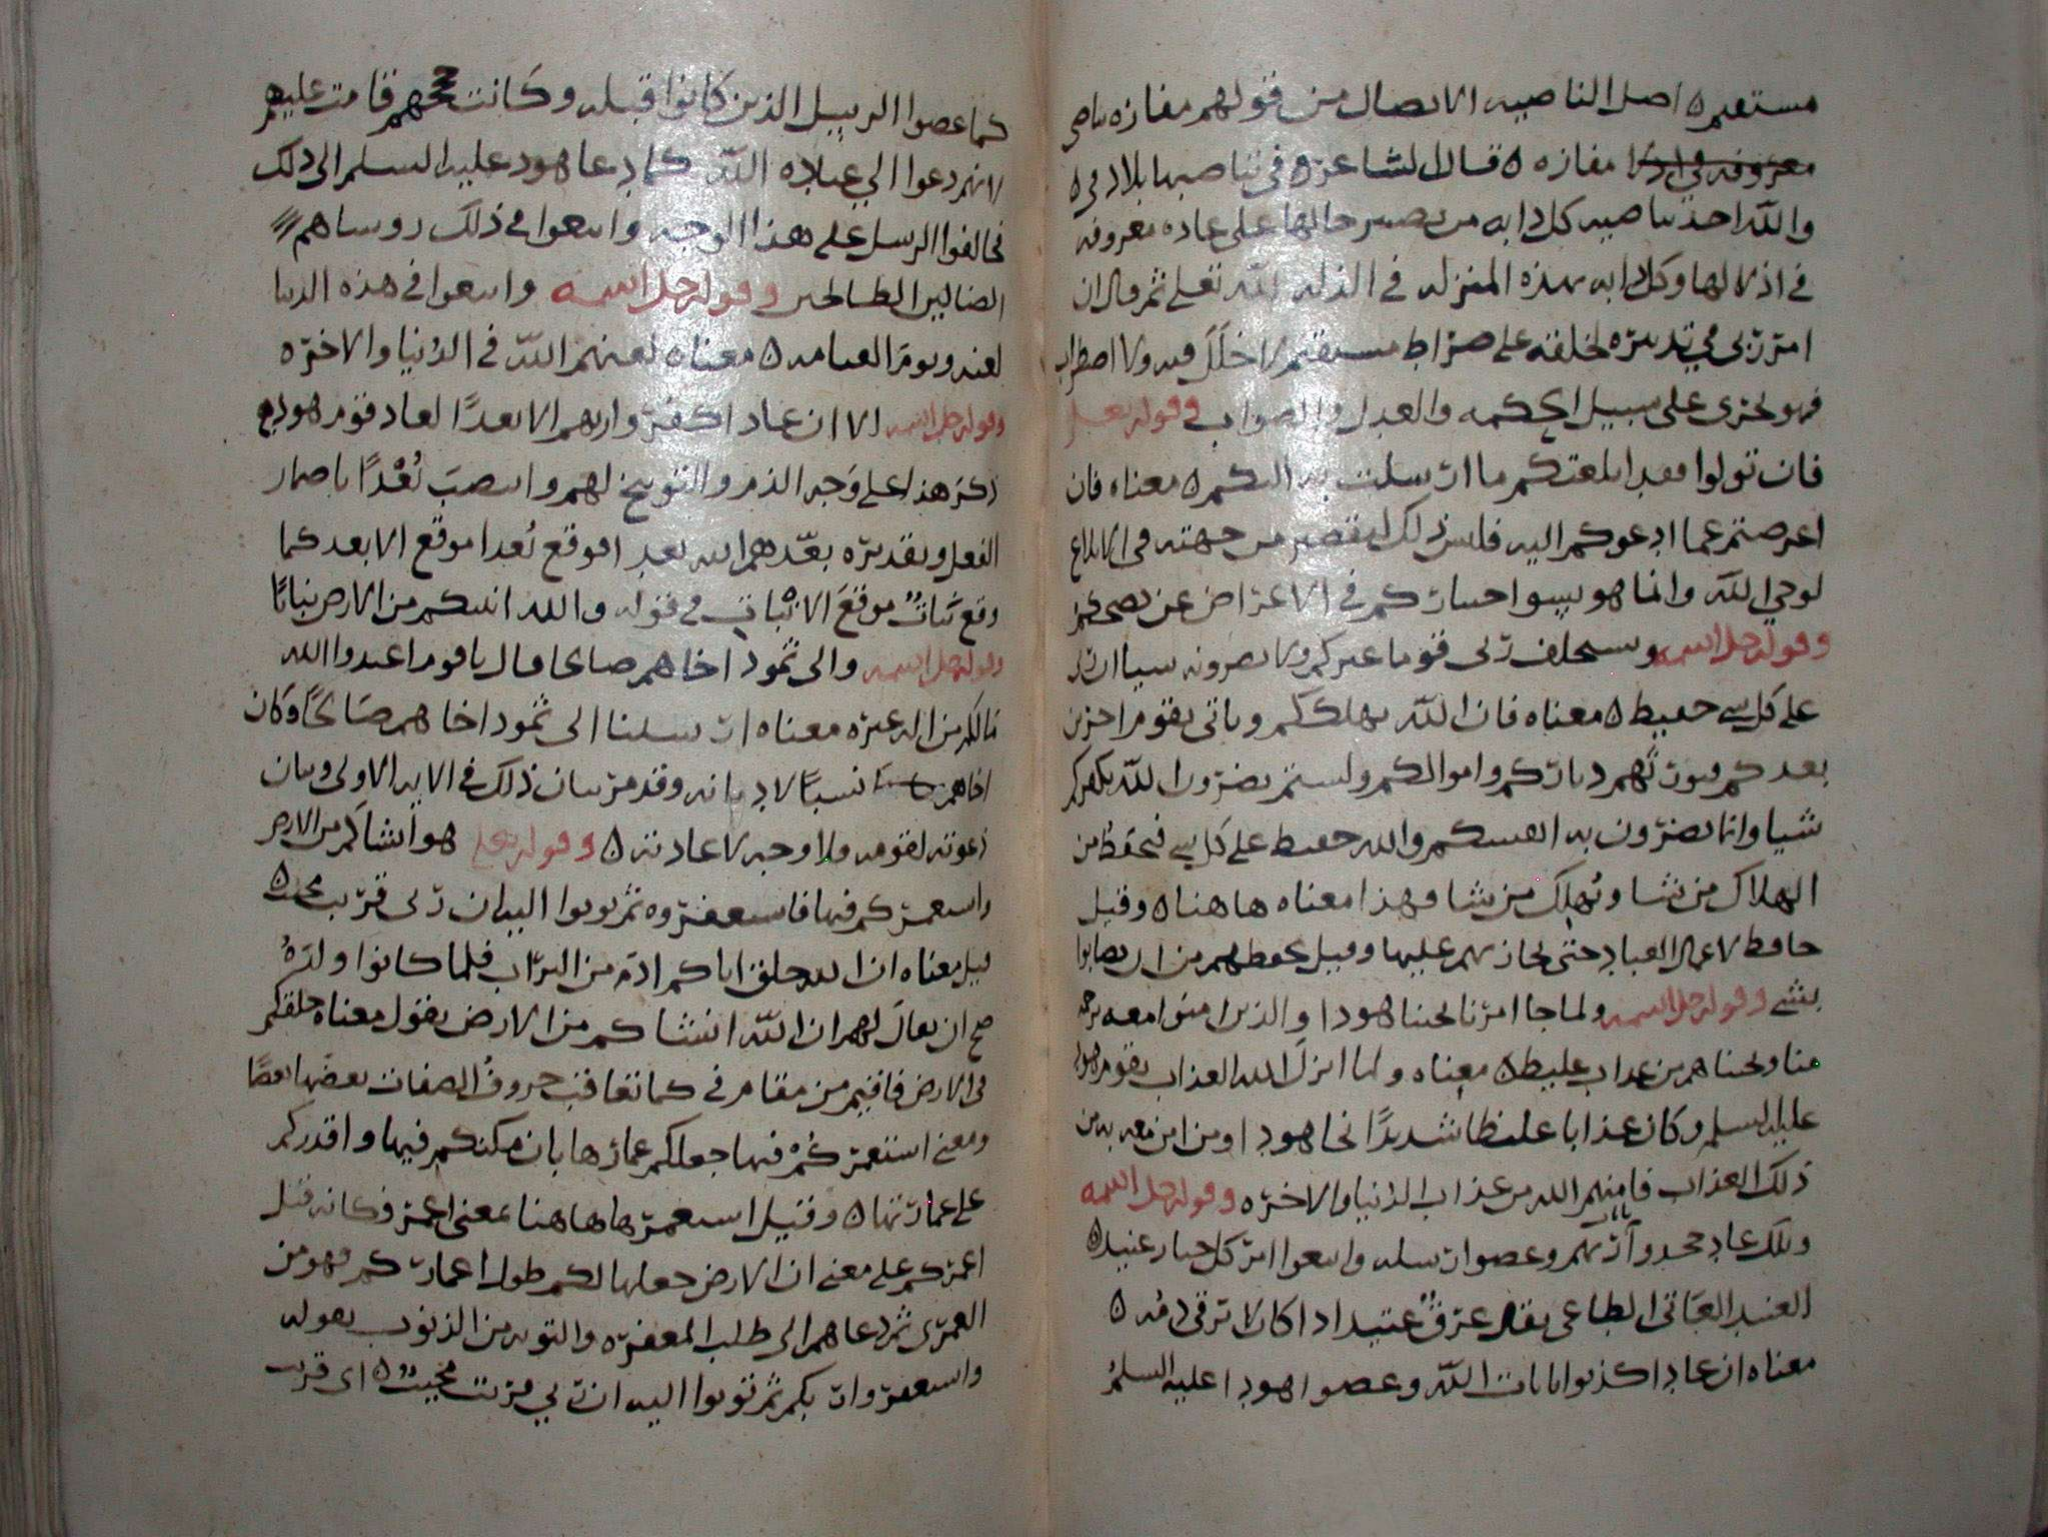 مستقيم ه اصل الناصيه الاتصال من قولهم مفازه تناصي
مفازه ه قال الشاعر ه في تناصيها بلاد في ه
والله احذ بناصيه كل دابه من تصير حالها على عاده معروفه
في اذلالها وكل دابه بهذه المنزله في الذله لله تعلى ثم قال ان
امر ربي في تدبيره لخلقه على صراط مستقيم لا خلل فيه ولا اضطراب
فهو يجرى على سبيل الحكمه والعدل والصواب وقوله تعلى
فان تولوا فقد ابلغتكم ما ارسلت به اليكم ه معناه فان
اعرضتم عما ادعوكم اليه فليس ذلك لتقصير من جهته في ابلاغ
لوحي الله وانما هو بسوا اختياركم في الاعراض عن نصحكم
وقوله جل اسمه وستخلف ربى قوما غيركم ولا تضرونه شيا ان ربى
على كل شي حفيظ ه معناه فان الله يهلككم وياتى بقوم اخرين
بعدكم فيورثهم دياركم واموالكم ولستم تضرون الله بكفركم
شيا وانما تضرون به انفسكم والله حفيظ على كل شي فيحفظ من
الهلاك من يشا ويهلك من يشا وهذا معناه هاهنا ه وقيل
حافظ لاعمال العباد حتى يجازيهم عليها وقيل يحفظهم من ان تصابوا
بشي وقوله جل اسمه ولما جا امرنا نجينا هودا والذين امنوا معه برحمه
منا ونجيناهم من عذاب غليظ ه معناه ولما انزل الله العذاب بقوم هود
عليه السلم وكان عذابا غليظا شديدا نجا هود ا ومن امن معه به من
ذلك العذاب فامنهم الله من عذاب الدنيا والاخره وقوله جل اسمه
وتلك عاد جحدوا بايات ربهم وعصوا رسله واتبعوا امر كل جبار عنيد ه
العنيد العاتى الطاغى يقال عرق عنيد اذا كان لا ترقى دمه ه
معناه ان عاد ا كذبوا بايات الله وعصوا هود ا عليه السلم
كما عصوا الرسل الذين كانوا قبله وكانت حجتهم قامت عليهم
لانهم دعوا الي عباده الله كما دعا هود عليه السلم الى ذلك
فخالفوا الرسل على هذا الوجه واتبعوا في ذلك روساهم
الضالين الطالحين وقوله جل اسمه واتبعوا في هذه الدنيا
لعنه ويوم القيامه ه معناه لعنهم الله في الدنيا والاخره
وقوله جل اسمه الا ان عاد ا كفروا ربهم الا بعدًا لعاد قوم هود
ذكر هذا على وجه الذم والتوبيخ لهم وانتصب بُعْدًا باضمار
الفعل وتقديره بعّدهم الله بعد ا فوقع بُعدا موقع الابعد كما
وقع نبات موقع الانبات في قوله والله انبتكم من الارض نباتا
وقوله جل اسمه والى ثمود اخاهم صالحا قال ياقوم اعبدوا الله
مالكم من اله غيره معناه ارسلنا الى ثمود اخاهم صالحًا وكان
اخاهم نسبًا لا ديانه وقد مر بيان ذلك في الايه الاولى وبيان
دعوته لقومه ولا وجه لاعادته ه وقوله تعلى هو انشاكم من الارض
واستعمركم فيها فاستغفروه ثم توبوا اليه ان ربى قريب مجيب ه
قيل معناه ان الله خلق اباكم ادم من التراب فلما كانوا ولدهُ
صح ان يقال لهم ان الله انشاكم من الارض يقول معناه خلقكم
في الارض فاقيم من مقام في كما تعاقب حروف الصفات بعضها بعضا
ومعنى استعمركم فيها جعلكم عمارها بان مكنكم فيها واقدركم
على عمارتها ه وقيل استعمرها هاهنا بمعنى اعمر وكانه قيل
اعمركم على معنى ان الارض جعلها لكم طول اعماركم فهو من
العمرى ثم دعاهم الى طلب المغفره والتوبه من الذنوب بقوله
واستغفروا ربكم ثم توبوا اليه ان ربي قريب مجيب ه اى قريب